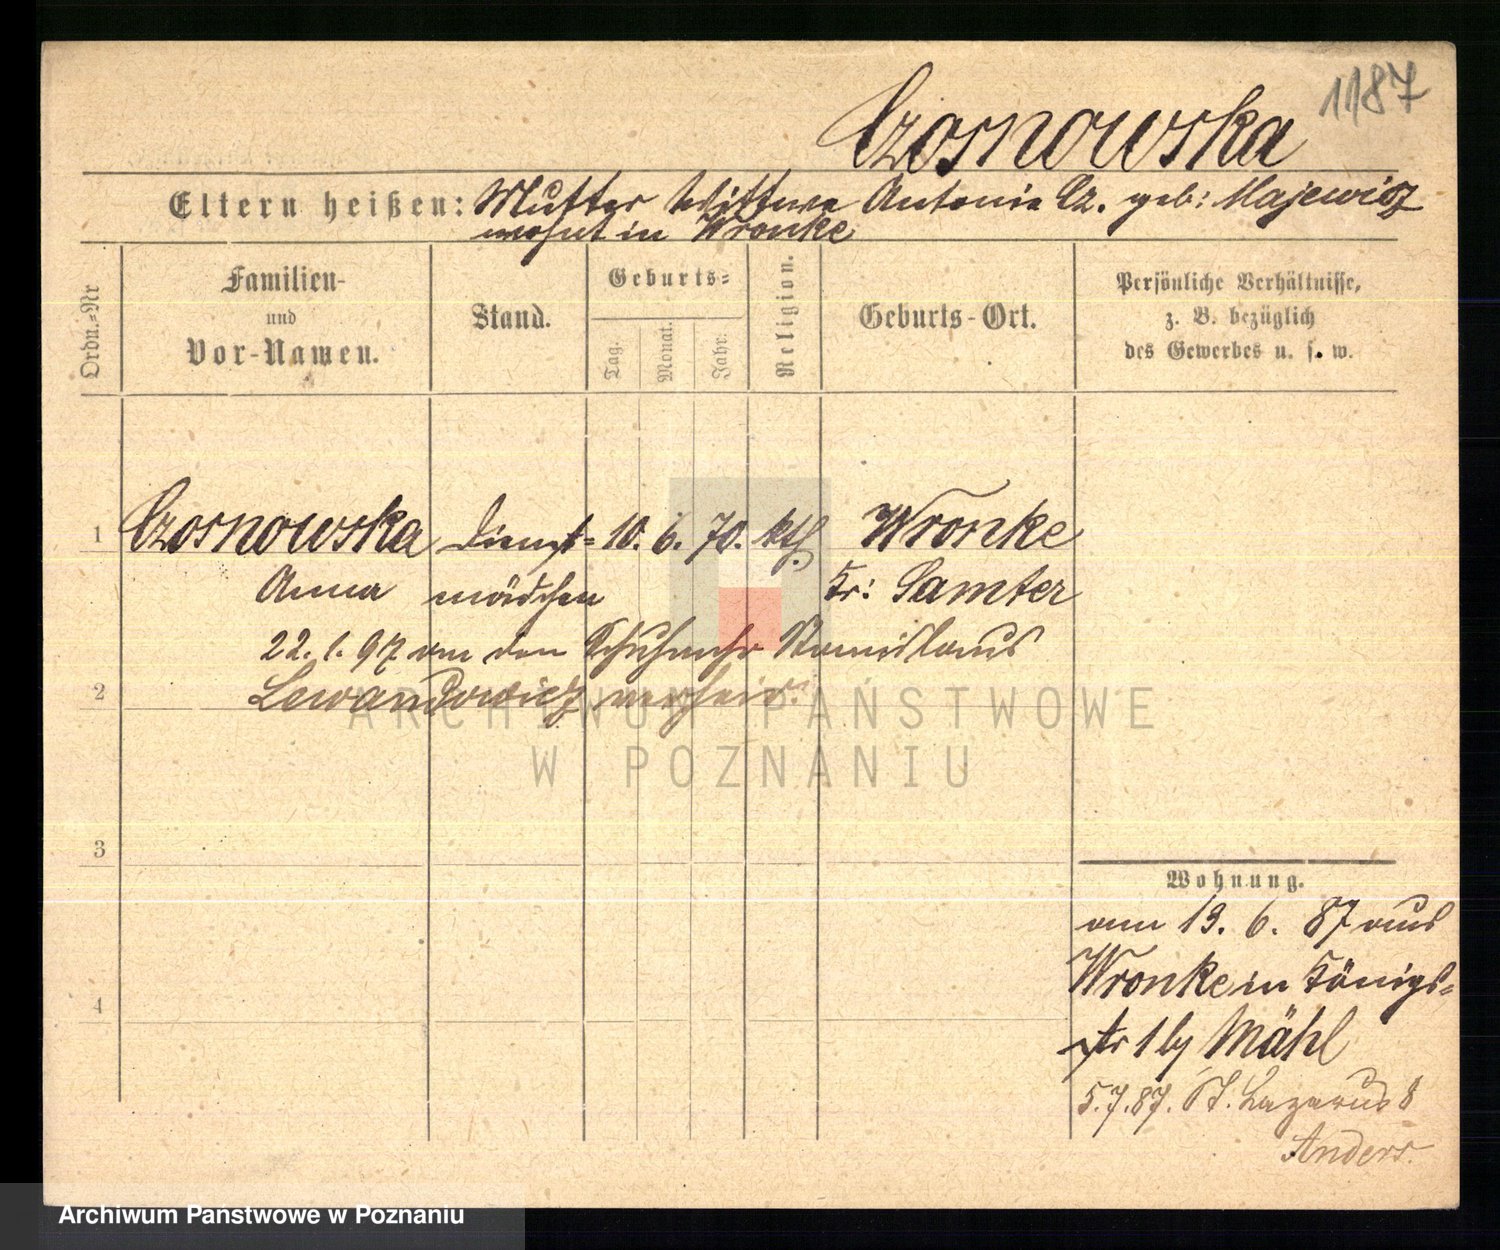 1187
Czosnowska
Eltern heißen: Mutter Wittwe Antonie Cz. geb: Majewicz
wohnt in Wronke
Ordn.-Nr
Familien-
und
Vor-Namen.
Stand.
Geburts-
Tag.
Monat.
Jahr.
Religion.
Geburts-Ort.
Persönliche Verhältnisse,
z. B. bezüglich
des Gewerbes u. s. w.
1 Czosnowska Dienst- 10. 6. 70. kth. Wronke
Anna mädchen Kr: Samter
22. 1. 97 an den Schuhmchr Stanislaus
2 Lewandowicz verheir.
ARCHIWUM PAŃSTWOWE
W POZNANIU
3
4
Wohnung.
am 13. 6. 87 aus
Wronke in Königs-
str 1 by Mähl
5.7.87. St. Lazarus 8
Anders.
Archiwum Państwowe w Poznaniu